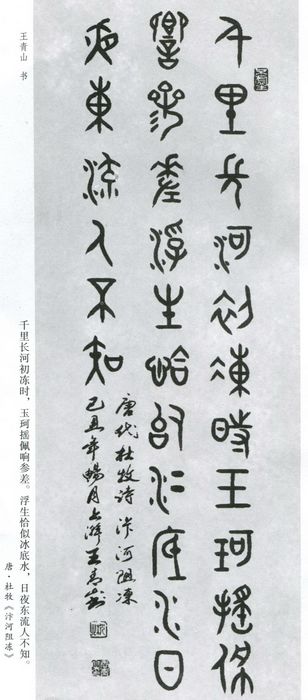 千里長河初凍時玉珂搖佩
響參差浮生恰似冰底水日
夜東流人不知
唐代杜牧詩汴河阻凍
己丑年暢月上澣王青山
王青山 书
千里长河初冻时，玉珂摇佩响参差。浮生恰似冰底水，日夜东流人不知。
唐·杜牧《汴河阻冻》